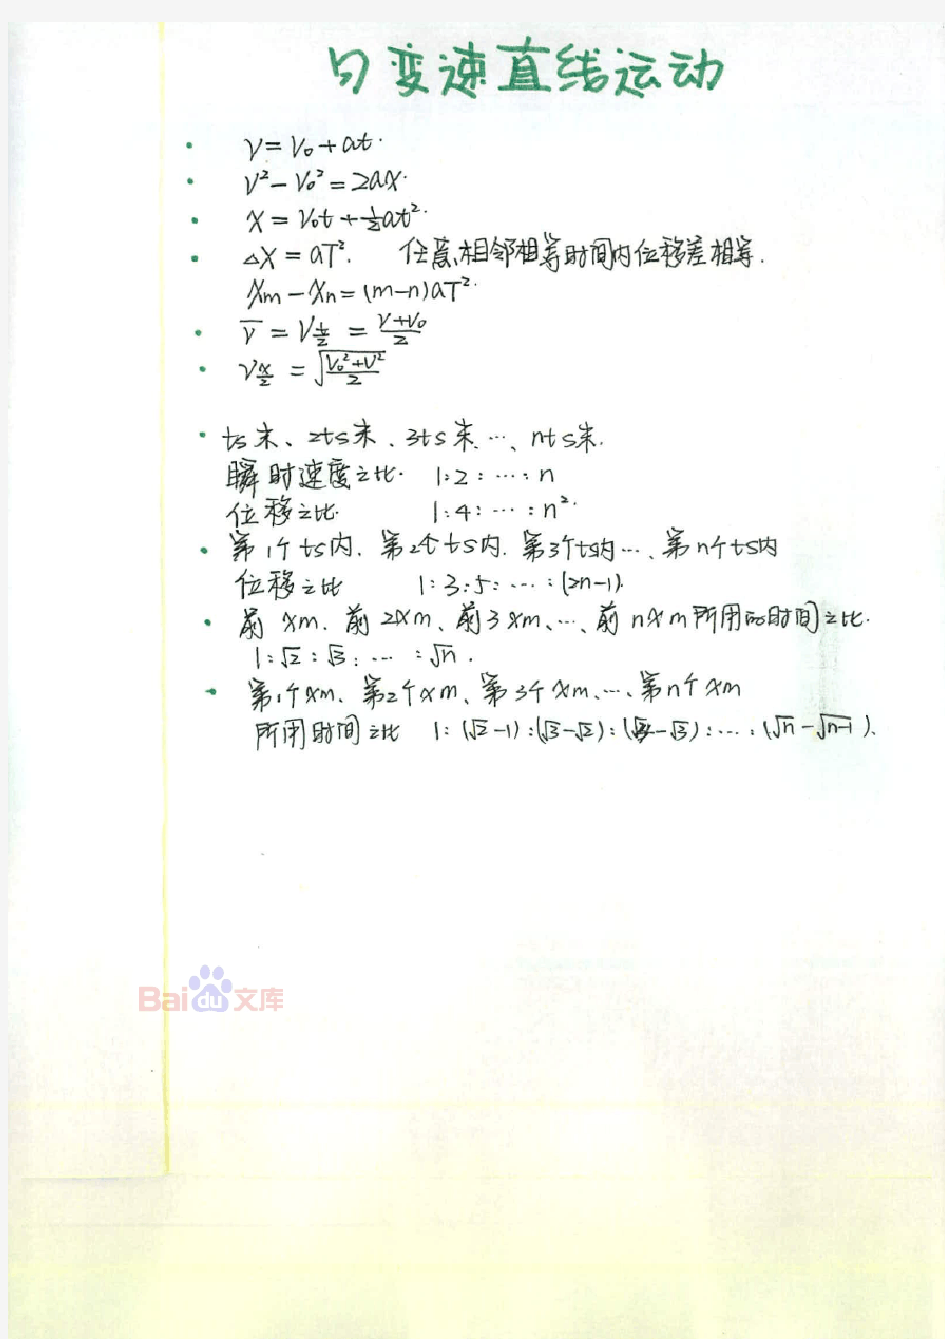 匀变速直线运动
· v=v₀+at.
· v²-v₀²=2ax.
· x=v₀t+½at².
· △x=aT². 任意相邻相等时间内位移差相等.
xm-xn=(m-n)aT².
· v̅=v_{t/2}=(v+v₀)/2
· v_{x/2}=√((v₀²+v²)/2)
· ts末、2ts末、3ts末、…、nts末.
瞬时速度之比. 1:2:…:n
位移之比. 1:4:…:n².
· 第1个ts内. 第2个ts内. 第3个ts内…、第n个ts内
位移之比 1:3:5:…:(2n-1).
· 前xm. 前2xm、前3xm、…、前nxm所用的时间之比.
1:√2:√3:…:√n.
· 第1个xm、第2个xm、第3个xm、…、第n个xm
所用时间之比 1:(√2-1):(√3-√2):(√4-√3):…:(√n-√n-1).
Baidu文库